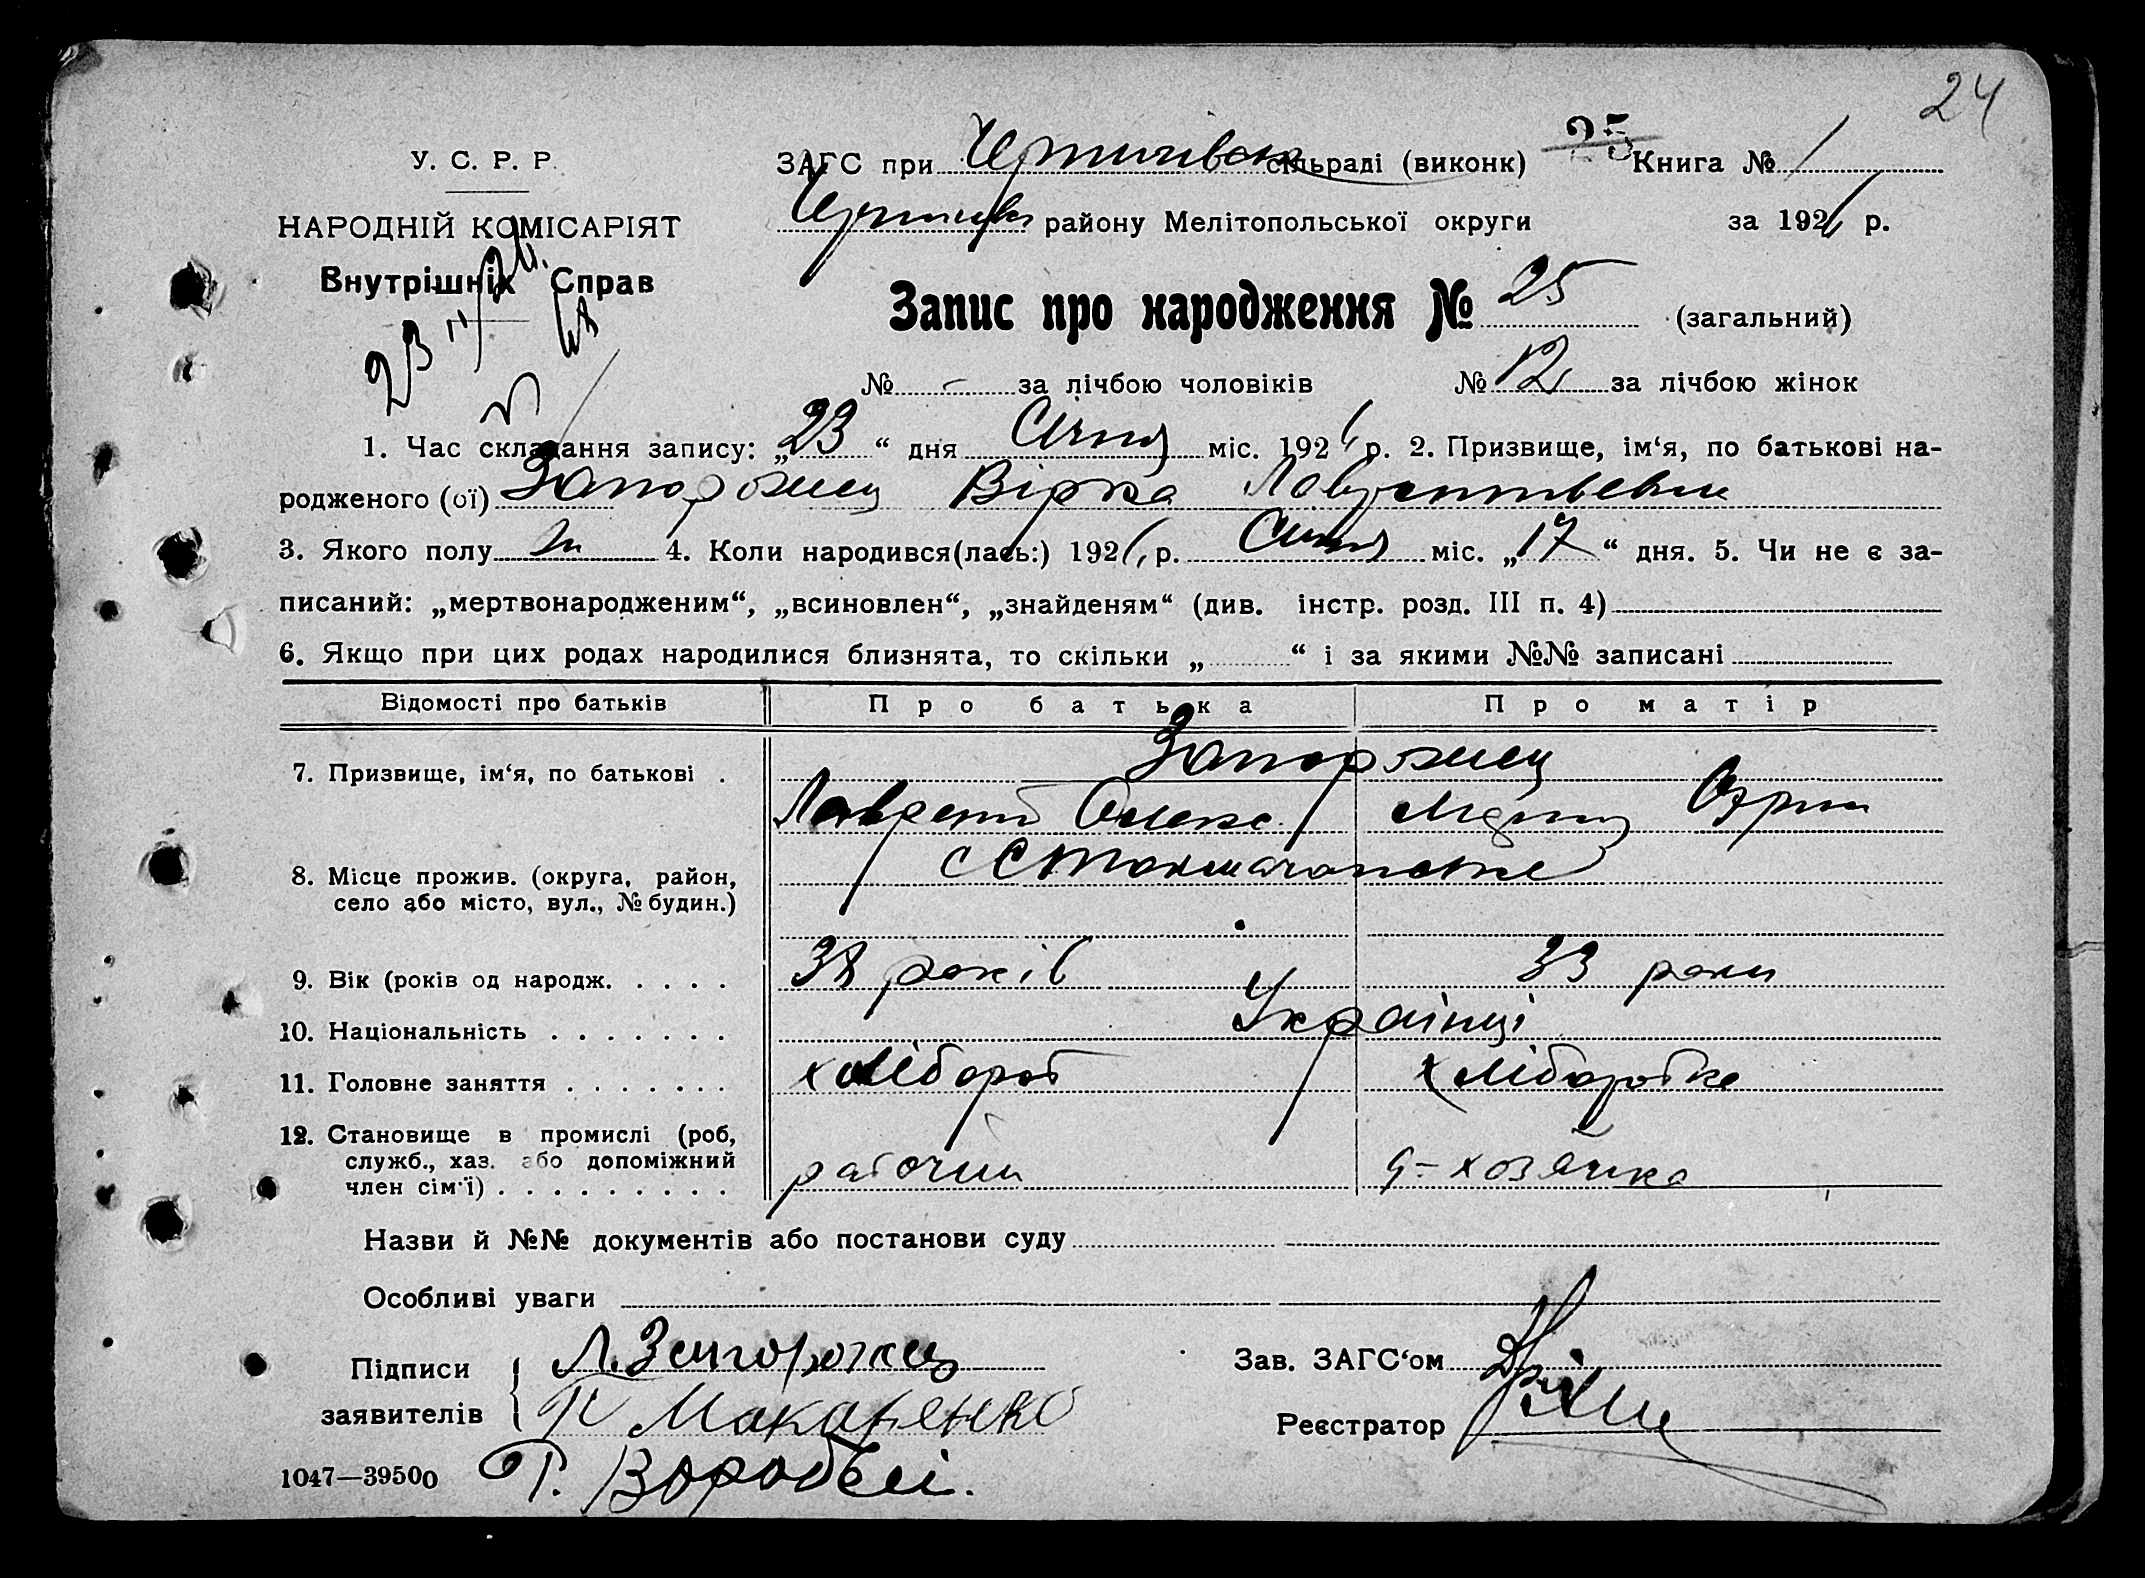 24
У. С. Р. Р.
ЗАГС при сільраді (виконк) 25 Книга № 1
НАРОДНІЙ КОМІСАРІЯТ
району Мелітопольської округи за 192 р.
Внутрішніх Справ
Запис про народження № 25 (загальний)
№ - за лічбою чоловіків № 12 за лічбою жінок
1. Час складання запису: „23“ дня Січня міс. 192 р. 2. Призвище, ім‘я, по батькові на-
родженого (ої) Запорожец Вірка
3. Якого полу 4. Коли народився(лась:) 192 р. Січня міс. „17“ дня. 5. Чи не є за-
писаний: „мертвонародженим“, „всиновлен“, „знайденям“ (див. інстр. розд. III п. 4)
6. Якщо при цих родах народилися близнята, то скільки „ “ і за якими №№ записані
Відомості про батьків Про батька Про матір
7. Призвище, ім‘я, по батькові . Запорожец
Лаврентій Олекс.
8. Місце прожив. (округа, район,
село або місто, вул., № будин.)
9. Вік (років од народж. . . . . 38 років 33 роки
10. Національність . . . . . . . Українці
11. Головне заняття . . . . . . . хлібороб хліборобка
12. Становище в промислі (роб,
служб., хаз. або допоміжний
член сім‘ї) . . . . . . . . . рабочий д-хозяйка
Назви й №№ документів або постанови суду
Особливі уваги
Підписи Л. Запорожец Зав. ЗАГС‘ом
заявителів П Макаренко Реєстратор
1047—39500 Г. Воробєй.